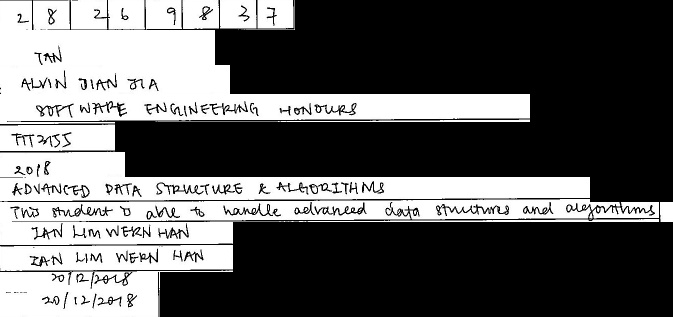 2 8 2 6 9 8 3 7
TAN
ALVIN JIAN JIA
SOFTWARE ENGINEERING HONOURS
FIT3155
2018
ADVANCED DATA STRUCTURE & ALGORITHMS
This student is able to handle advanced data structures and algorithms
IAN LIM WERN HAN
IAN LIM WERN HAN
20/12/2018
20/12/2018